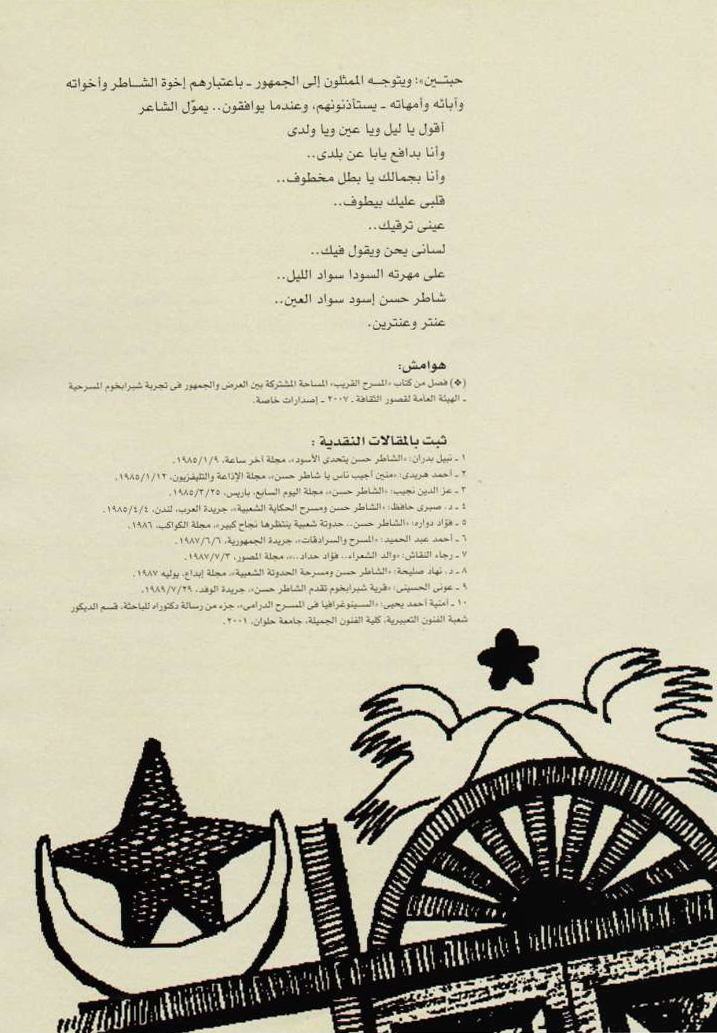 حبتـين»؛ ويتوجـه الممثلون إلى الجمهور ـ باعتبارهم إخوة الشـاطر وأخواته
وآبائه وأمهاته ـ يستأذنونهم، وعندما يوافقون.. يموّل الشاعر
أقول يا ليل ويا عين ويا ولدى
وأنا بدافع يابا عن بلدى..
وأنا بجمالك يا بطل مخطوف..
قلبى عليك بيطوف..
عينى ترقيك..
لسانى يحن ويقول فيك..
على مهرته السودا سواد الليل..
شاطر حسن إسود سواد العين..
عنتر وعنترين.
هوامش:
(❖) فصل من كتاب «المسرح القريب» المساحة المشتركة بين العرض والجمهور فى تجربة شبرابخوم المسرحية
ـ الهيئة العامة لقصور الثقافة ـ ٢٠٠٧ ـ إصدارات خاصة.
ثبت بالمقالات النقدية :
١ ـ نبيل بدران: «الشاطر حسن يتحدى الأسود»، مجلة آخر ساعة، ١٩٨٥/١/٩.
٢ ـ أحمد هريدى: «منين أجيب ناس يا شاطر حسن»، مجلة الإذاعة والتليفزيون، ١٩٨٥/١/١٢.
٣ ـ عز الدين نجيب: «الشاطر حسن»، مجلة اليوم السابع، باريس، ١٩٨٥/٣/٢٥.
٤ ـ د. صبرى حافظ: «الشاطر حسن ومسرح الحكاية الشعبية»، جريدة العرب، لندن، ١٩٨٥/٤/٤.
٥ ـ فؤاد دواره: «الشاطر حسن.. حدوتة شعبية ينتظرها نجاح كبير»، مجلة الكواكب، ١٩٨٦.
٦ ـ أحمد عبد الحميد: «المسرح والسرادقات»، جريدة الجمهورية، ١٩٨٧/٦/٦.
٧ ـ رجاء النقاش: «والد الشعراء.. فؤاد حداد..»، مجلة المصور، ١٩٨٧/٧/٣.
٨ ـ د. نهاد صليحة: «الشاطر حسن ومسرحة الحدوتة الشعبية»، مجلة إبداع، يوليه ١٩٨٧.
٩ ـ عونى الحسينى: «قرية شبرابخوم تقدم الشاطر حسن»، جريدة الوفد، ١٩٨٩/٧/٢٩.
١٠ ـ أمنية أحمد يحيى: «السينوغرافيا فى المسـرح الدرامى»، جزء من رسالة دكتوراه للباحثة، قسم الديكور
شعبة الفنون التعبيرية، كلية الفنون الجميلة، جامعة حلوان، ٢٠٠١.